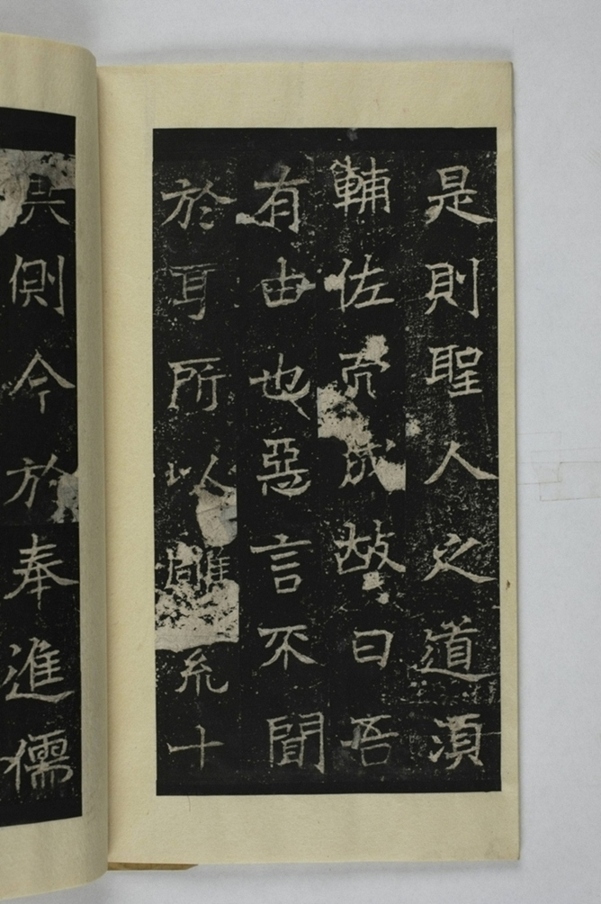 是則聖人之道須
輔佐而成故曰吾
有由也惡言不聞
於耳所以雕十
其側今於奉進儒